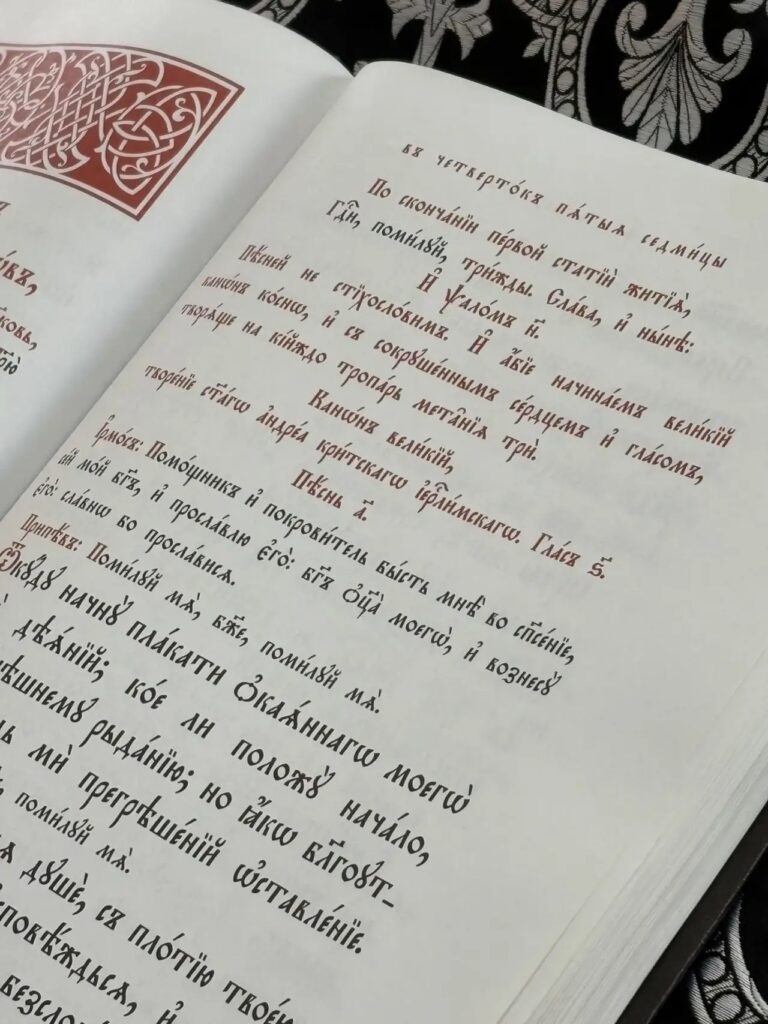 въ четверто́къ пѧ́тыѧ седми́цы
По сконча́нїи пе́рвой статїѝ житїѧ̀,
Гдⷭ҇и, поми́лꙋй, три́жды. Сла́ва, и҆ ны́нѣ:
И҆ ѱало́мъ н҃.
Пѣ́сней не стїхосло́вимъ. И҆ а҆́бїе начина́емъ вели́кїй
канѡ́нъ ко́снѡ, и҆ съ сокрꙋше́ннымъ се́рдцемъ и҆ гла́сомъ,
творѧ́ще на кі́йждо тропа́рь мета̑нїѧ трѝ.
Канѡ́нъ вели́кїй,
творе́нїе ст҃а́гѡ а҆ндре́а кри́тскагѡ і҆ерⷭ҇ли́мскагѡ. Гла́съ ѕ҃.
Пѣ́снь а҃.
І҆рмо́съ: Помо́щникъ и҆ покрови́тель бы́сть мнѣ̀ во сп҃се́нїе,
се́й мо́й бг҃ъ, и҆ просла́влю є҆го̀: бг҃ъ ѻ҆ц҃а̀ моегѡ̀, и҆ вознесꙋ̀
є҆го̀: сла́внѡ бо просла́висѧ.
Припѣ́въ: Поми́лꙋй мѧ̀, бж҃е, поми́лꙋй мѧ̀.
Ѿкꙋ́дꙋ начнꙋ̀ пла́кати ѻ҆каѧ́ннагѡ моегѡ̀
дѣѧ́нїй; ко́е ли положꙋ̀ нача́ло,
рыда́нїю; но ꙗ҆́кѡ бл҃гоꙋт-
мѝ прегрѣше́нїй ѡ҆ставле́нїе.
поми́лꙋй мѧ̀.
дꙋшѐ, съ пло́тїю твое́ю
и҆